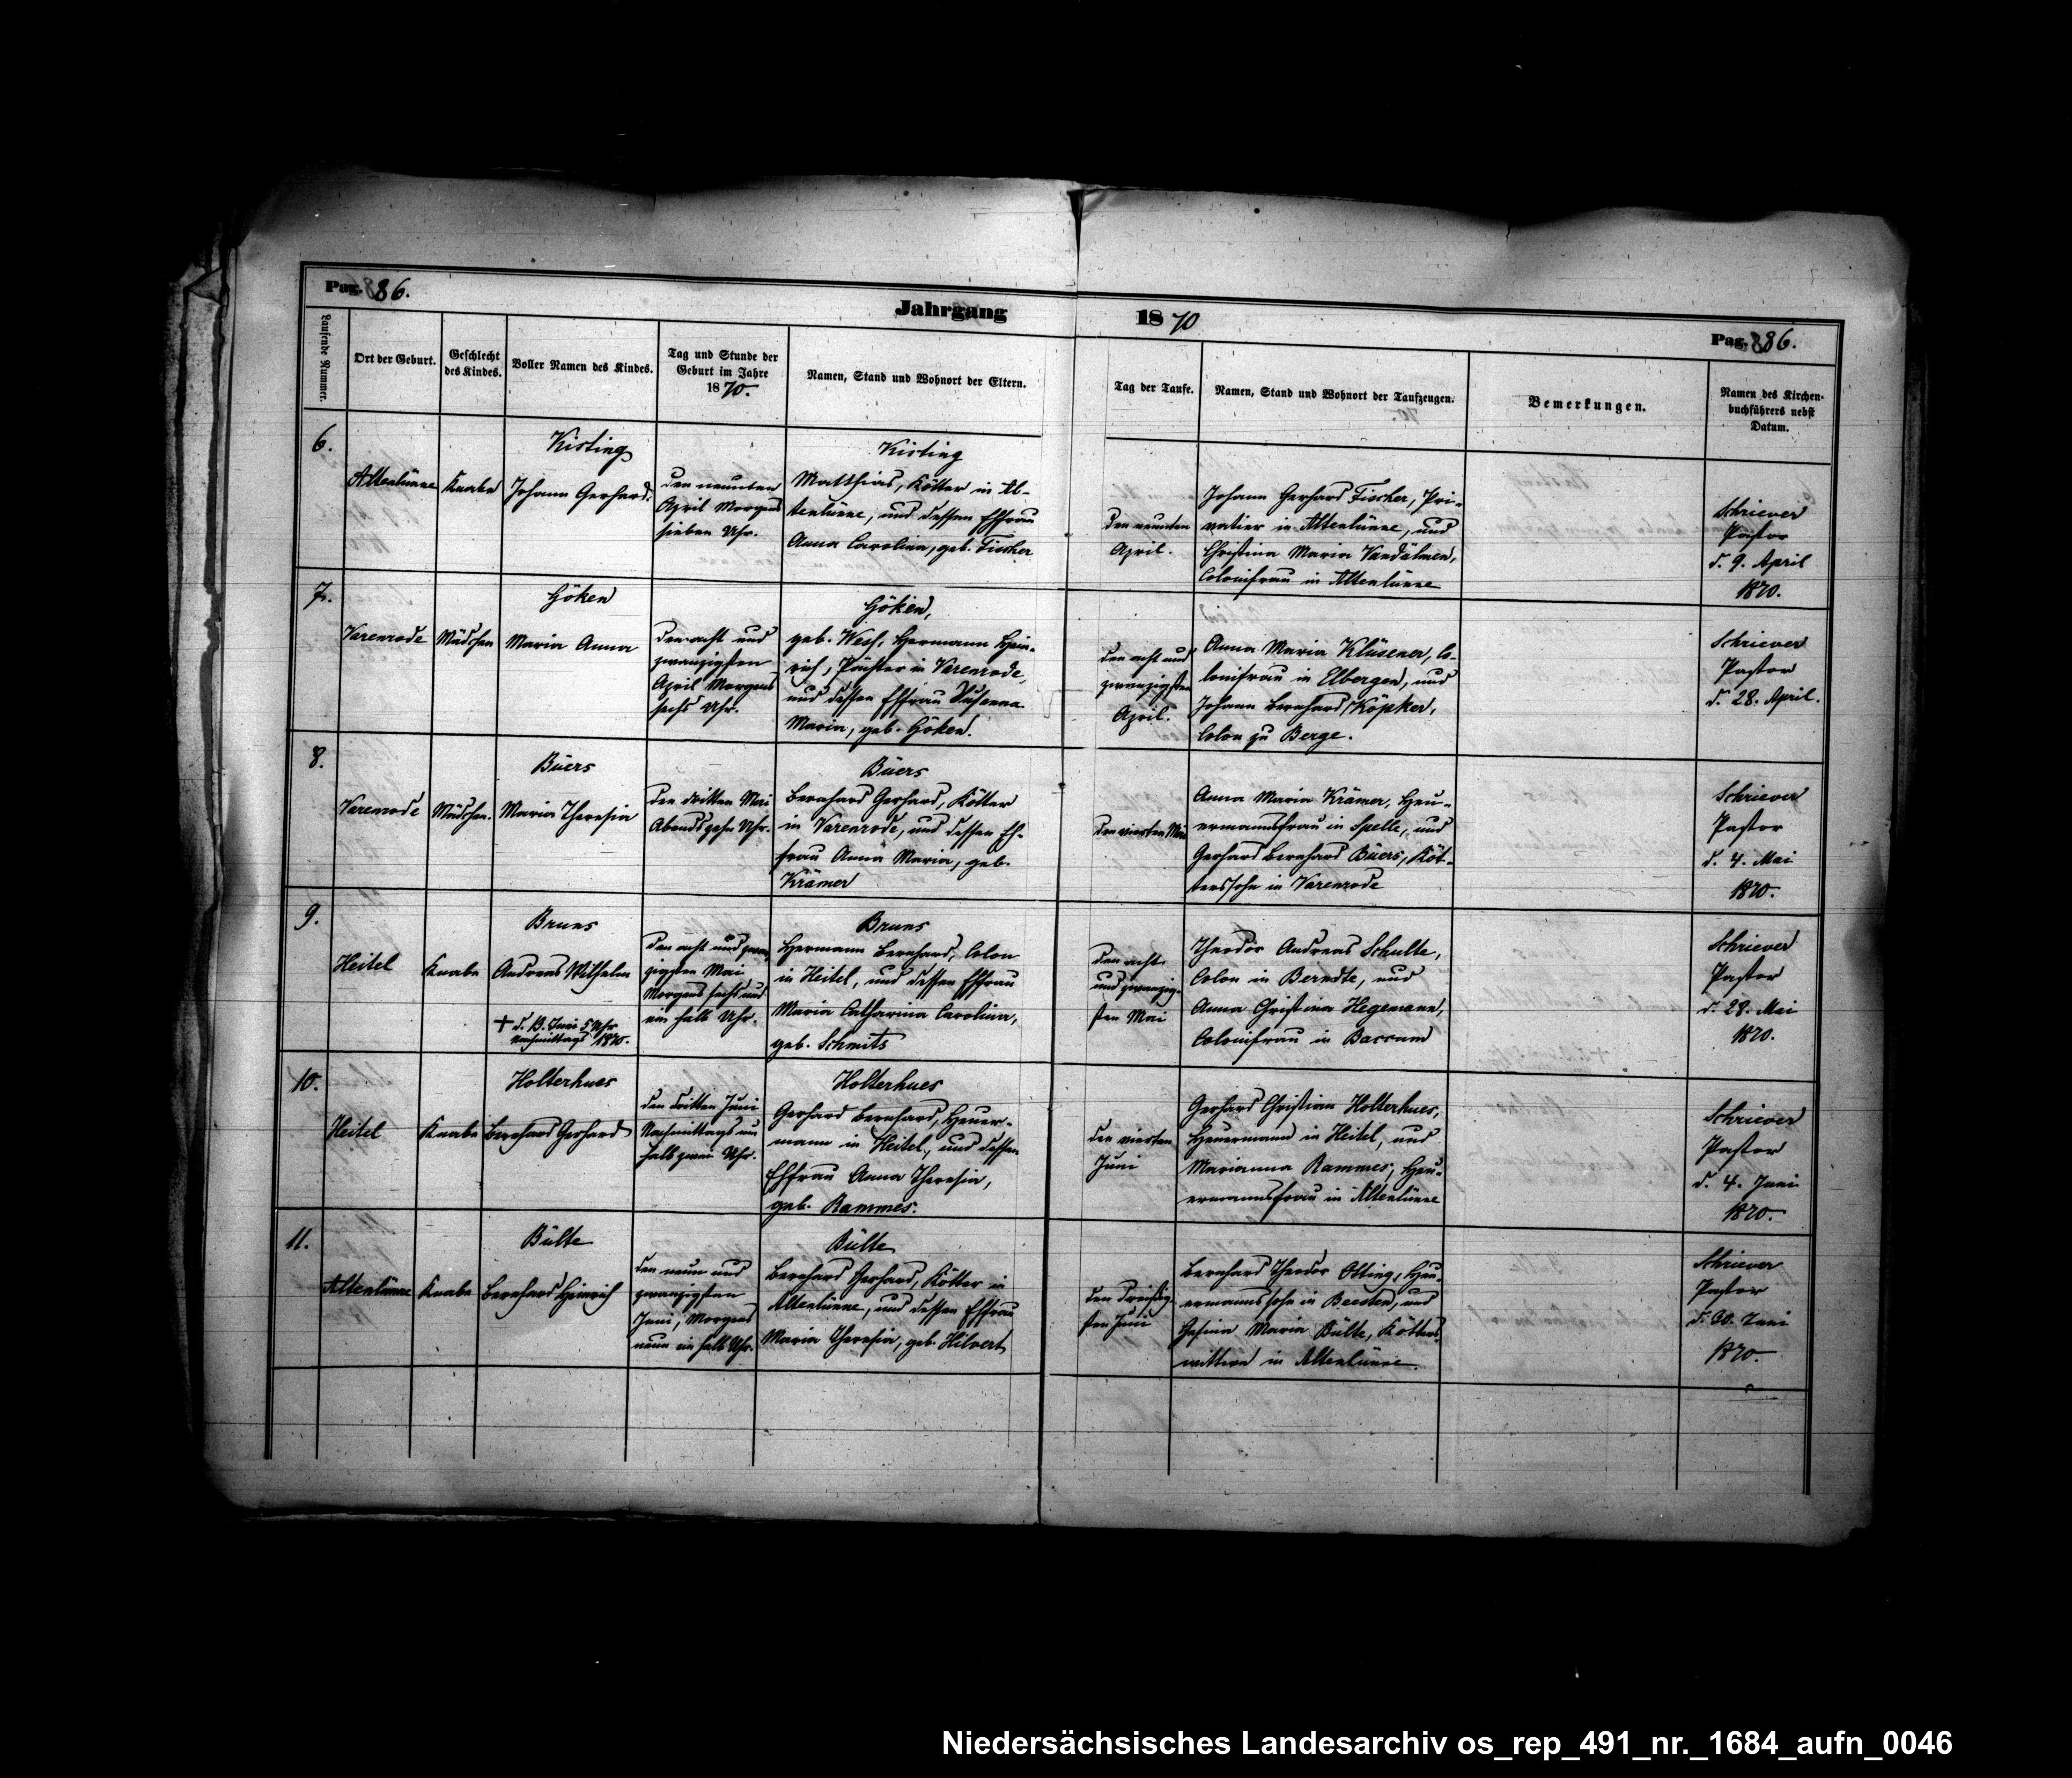 Pag. 86.
Jahrgang 1870
Pag. 86.
Laufende Nummer.
Ort der Geburt.
Geschlecht
des Kindes.
Voller Namen des Kindes.
Tag und Stunde der
Geburt im Jahre
1870.
Namen, Stand und Wohnort der Eltern.
Tag der Taufe.
Namen, Stand und Wohnort der Taufzeugen.
Bemerkungen.
Namen des Kirchen-
buchführers nebst
Datum.
6.
Altenlünne
Knabe
Kisting
Johann Gerhard.
Den neunten
April Morgens
sieben Uhr.
Kisting
Matthias, Kötter in Al-
tenlünne, und dessen Ehfrau
Anna Carolina, geb. Fischer
Den neunten
April.
Johann Gerhard Fischer, Pri-
vatier in Altenlünne, und
Christina Maria
Colonifrau in Altenlünne
Schriever
Pastor
d. 9. April
1870.
7.
Varenrode
Mädchen
Göken
Maria Anna
Den acht und
zwanzigsten
April Morgens
sechs Uhr.
Göken,
geb. Wess, Hermann Hein-
rich, Pächter in Varenrode,
und dessen Ehfrau Susanna
Maria, geb. Göken.
den acht und
zwanzigsten
April.
Anna Maria Klüsener, Co-
lonifrau in Elbergen, und
Johann Bernhard Köpker,
Colon zu Berge.
Schriever
Pastor
d. 28. April.
8.
Varenrode
Mädchen.
Büers
Maria Theresia
den dritten Mai
Abends zehn Uhr.
Büers
Bernhard Gerhard, Kötter
in Varenrode, und dessen Eh-
frau Anna Maria, geb.
Krämer
den vierten Mai
Anna Maria Krämer, Heu-
ermannsfrau in Spelle, und
Gerhard Bernhard Büers, Köt-
terssohn in Varenrode
Schriever
Pastor
d. 4. Mai
1870.
9.
Heitel
Knabe
Bruns
Andreas Wilhelm
+ d. 13. Juni 5 Uhr
nachmittags 1870.
den acht und zwan
zigsten Mai
Morgens sechs und
ein halb Uhr.
Bruns
Hermann Bernhard, Colon
in Heitel, und dessen Ehfrau
Maria Catharina Carolina,
geb. Schmits
den acht
und zwanzig-
sten Mai
Theodor Andreas Schulte,
Colon in Berndte, und
Anna Christina Hegemann,
Colonifrau in Baccum
Schriever
Pastor
d. 28. Mai
1870.
10.
Heitel
Knabe
Holterhues
Bernhard Gerhard
den dritten Juni
Nachmittags um
halb zwei Uhr.
Holterhues
Gerhard Bernhard, Heuer-
mann in Heitel, und dessen
Ehfrau Anna Theresia,
geb. Rammes.
den vierten
Juni
Gerhard Christian Holterhues,
Heuermann in Heitel, und
Marianna Rammes, Heu-
ermannsfrau in Altenlünne
Schriever
Pastor
d. 4. Juni
1870.
11.
Altenlünne
Knabe
Bülte
Bernhard Heinrich
den neun und
zwanzigsten
Juni, Morgens
neun ein halb Uhr.
Bülte
Bernhard Gerhard, Kötter in
Altenlünne, und dessen Ehfrau
Maria Theresia, geb. Hilvert
den dreißig-
sten Juni
Bernhard Theodor Otting, Heu-
ermannssohn in Beesten, und
Gesina Maria Bülte, Kötters
wittwe in Altenlünne.
Schriever
Pastor
d. 30. Juni
1870.
Niedersächsisches Landesarchiv os_rep_491_nr._1684_aufn_0046